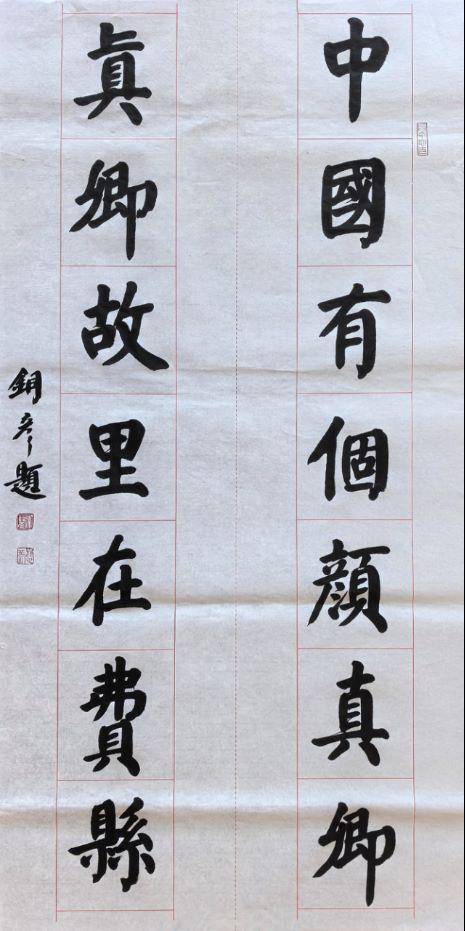 中國有個顏真卿
眞卿故里在費縣
銅彥題